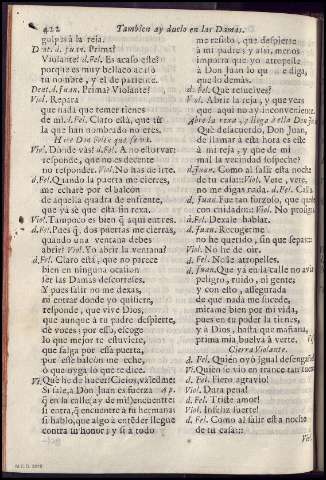 422 Tambien ay duelo en las Damas.
golpes à la reja.
Dent. d. Juan. Prima?
Violante! d. Fel. Es acaso este?
porque es muy bellaco acaso
tu nombre, y el de pariente.
Dent. d. Juan. Prima? Violante?
Viol. Repara
que nada que temer tienes
de mi. d. Fel. Claro està, que ti
la que han nombrado no eres.
Viol. Dònde vàs? d. Fel. A no estorvar:
responde, que no es decente
no responder. Viol. No has de irte.
d. Fel. Quando la puerta me cierres,
me echarè por el balcon
de aquella quadra de enfrente,
que yà sè que està sin rexa.
Viol. Tampoco es bien q̃ aqui entres.
d. Fel. Pues q̃, dos puertas me cierras,
quando una ventana debes
abrir? Viol. Yo abrir la ventana?
d. Fel. Claro està, que no parece
bien en ninguna ocasion
ser las Damas descorteses.
Y pues salir no me dexas,
mi entrar donde yo quisiere,
responde, que vive Dios,
que aunque à tu padre despierte,
de voces; por esso, escoge
lo que mejor te estuviere,
que salga por essa puerta,
por esse balcon me eche,
ò que oyga lo que te dice.
Vi. Què he de hacer! Cielos, valedme!
Si sale, à Don Juan es fuerza
q̃ en la calle (ay de mi!) encuentre:
si entra, q̃ encuentre à tu hermana:
si hablo, que algo à entẽder llegue
contra tu honor; y si à todo
me resisto, que despierte
à mi padre; y assi, menos
importa que yo atropelle
à Don Juan lo que diga,
que lo demàs.
d. Fel. Què resuelves?
Viol. Abrir la reja, y que veas
que aqui no ay inconveniente.
Què desacuerdo, Don Juan,
de llamar à esta hora es este
à mi reja, y que de mi
mal la vecindad sospeche?
d. Juan. Como al salir esta noche
de tu casa: Viol. Vete, vete,
no me digas nada. d. Fel. Cansada
d. Juan. Fue tan forzoso, que quede
con cuidado: Viol. No prosigas
d. Fel. Dexale hablar.
d. Juan. Recogerme
no he querido, sin que sepas:
Viol. No he de oir.
d. Fel. No le atropelles.
d. Juan. Que yà en la calle no avia
peligro, ruido, ni gente;
y con esto, assegurada
de que nada me sucede,
mirame bien por mi vida,
pues en tu poder la tienes,
y à Dios, hasta que mañana,
prima mia buelva à verte.
Cierra Violante.
d. Fel. Quièn oyò igual desengaño!
Vi. Quièn se viò en trance tan fuerte!
d. Fel. Fiero agravio!
Viol. Dura pena!
d. Fel. Triste amor!
Viol. Infeliz suerte!
d. Fel. Como al salir esta noche
de tu casa: